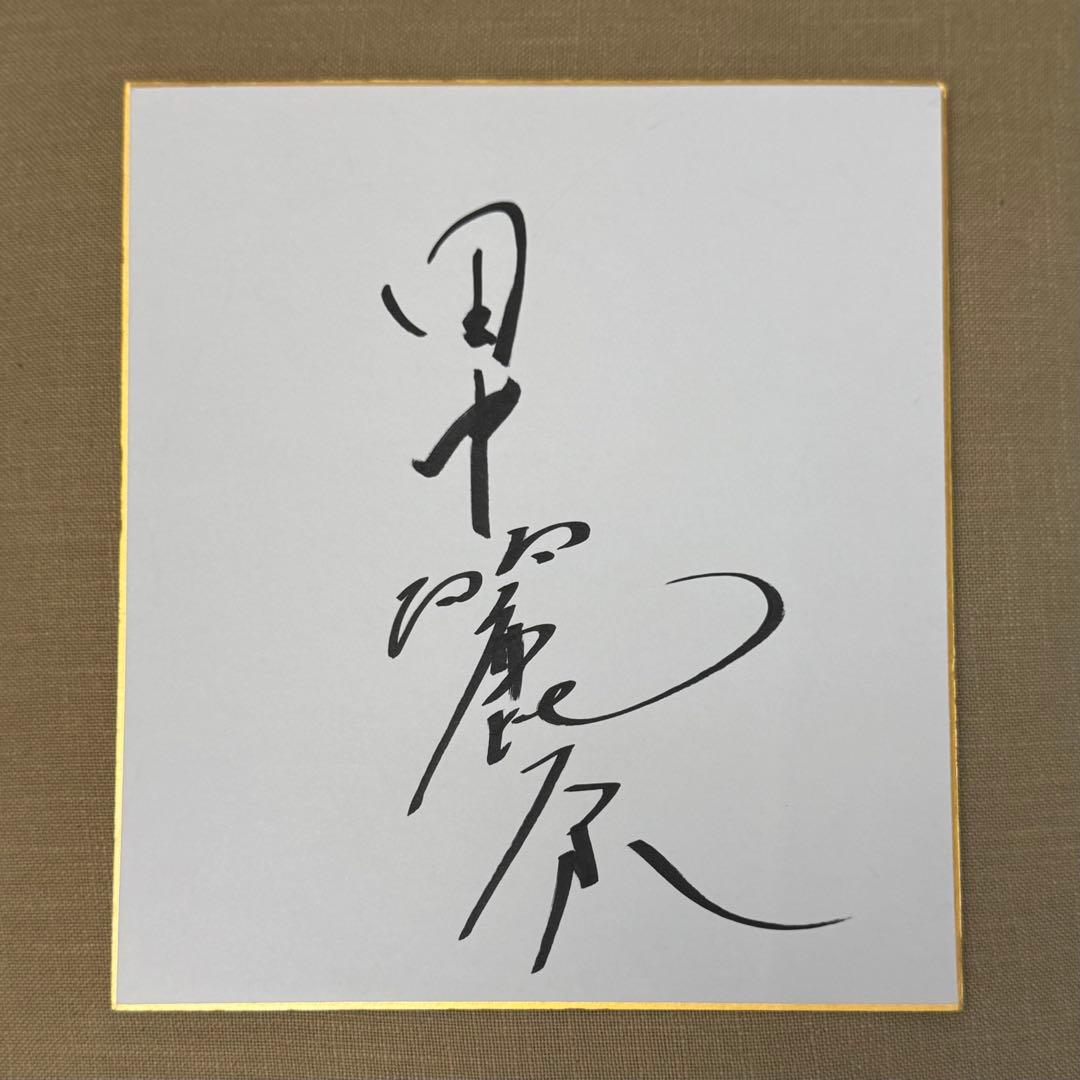 田中麗奈